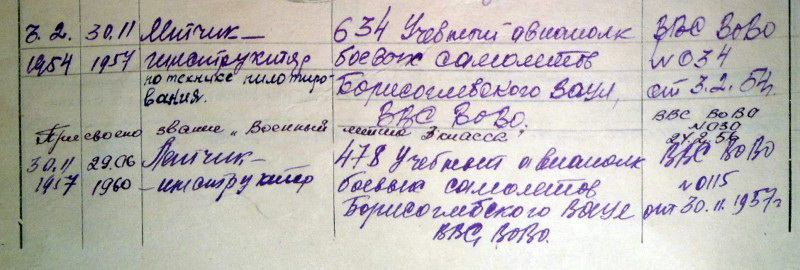 3.2. 30.11 Летчик— 634 Учебный авиаполк ВВС ВоВО
1954 1957 инструктор боевых самолетов № 034
по технике пилотиро- Борисоглебского Ваул, от 3.2.54г.
вания. ВВС ВоВО.
Присвоено звание „Военный летчик 3 класса" ВВС ВоВО
№030
24.2.56
30.11 29.06 Летчик— 478 Учебный авиаполк ВВС ВоВО
1957 1960 —инструктор боевых самолетов №0115
Борисоглебского Вауле от 30.11.1957г
ВВС, ВоВО.